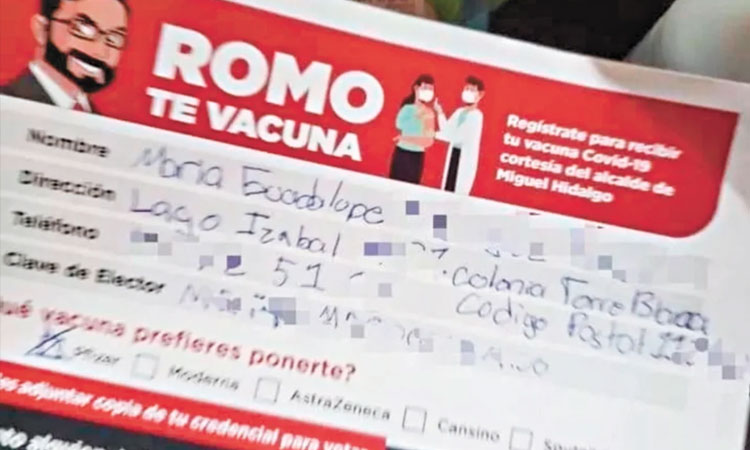 ROMO
TE VACUNA
Regístrate para recibir
tu vacuna Covid-19
cortesía del alcalde de
Miguel Hidalgo
Nombre María Guadalupe
Dirección Lago Izabal Colonia Torre Blanca
Teléfono 51 Codigo Postal 112
Clave de Elector
ué vacuna prefieres ponerte?
Pfizer Moderna AstraZeneca Cansino
es adjuntar copia de tu credencial para votar